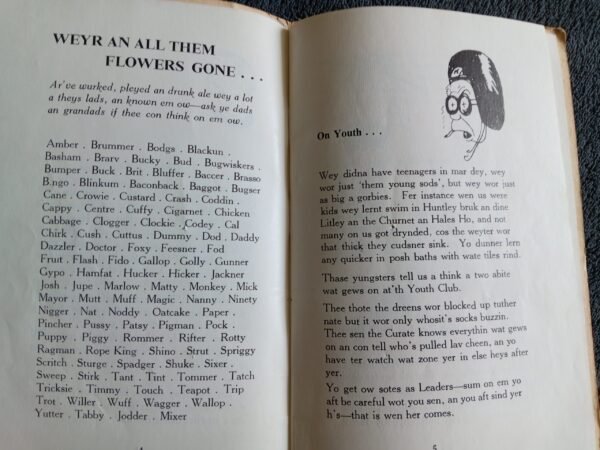 WEYR AN ALL THEM
FLOWERS GONE . . .
Ar've wurked, pleyed an drunk ale wey a lot
a theys lads, an known em ow—ask ye dads
an grandads if thee con think on em ow.
Amber . Brummer . Bodgs . Blackun .
Basham . Brarv . Bucky . Bud . Bugwiskers .
Bumper . Buck . Brit . Bluffer . Baccer . Brasso
B.ngo . Blinkum . Baconback . Baggot . Bugser
Cane . Crowie . Custard . Crash . Coddin .
Cappy . Centre . Cuffy . Cigarnet . Chicken
Cabbage . Clogger . Clockie . Codey . Cal
Chirk . Cush . Cuttus . Dummy . Dod . Daddy
Dazzler . Doctor . Foxy . Feesner . Fod
Fruit . Flash . Fido . Gallop . Golly . Gunner
Gypo . Hamfat . Hucker . Hicker . Jackner
Josh . Jupe . Marlow . Matty . Monkey . Mick
Mayor . Mutt . Muff . Magic . Nanny . Ninety
Nigger . Nat . Noddy . Oatcake . Paper .
Pincher . Pussy . Patsy . Pigman . Pock .
Puppy . Piggy . Rommer . Rifter . Rotty
Ragman . Rope King . Shino . Strut . Spriggy
Scritch . Sturge . Spadger . Shuke . Sixer .
Sweep . Stirk . Tant . Tint . Tommer . Tatch
Tricksie . Timmy . Touch . Teapot . Trip
Trot . Willer . Wuff . Wagger . Wallop .
Yutter . Tabby . Jodder . Mixer
On Youth . . .
Wey didna have teenagers in mar dey, wey
wor just 'them young sods', but wey wor just
as big a gorbies. Fer instance wen us were
kids wey lernt swim in Huntley bruk an dine
Litley an the Churnet an Hales Ho, and not
many on us got drynded, cos the weyter wor
that thick they cudsner sink. Yo dunner lern
any quicker in posh baths with wate tiles rind.
Thase yungsters tell us a think a two abite
wat gews on at'th Youth Club.
Thee thote the dreens wor blocked up tuther
nate but it wor only whosit's socks buzzin.
Thee sen the Curate knows everythin wat gews
on an con tell who's pulled lav cheen, an yo
have ter watch wat zone yer in else heys after
yer.
Yo get ow sotes as Leaders—sum on em yo
aft be careful wot you sen, an you aft sind yer
h's—that is wen her comes.
5